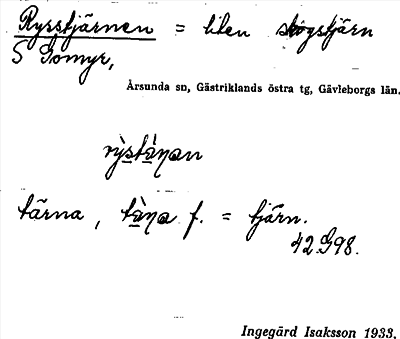 Ryrstjärnen = liten skogstjärn
S Gomyr,
Årsunda sn, Gästriklands östra tg, Gävleborgs län.
rỳstæ̀ṇan
tärna, tæ̀ṇa f. = tjärn.
42.G98.
Ingegärd Isaksson 1933.